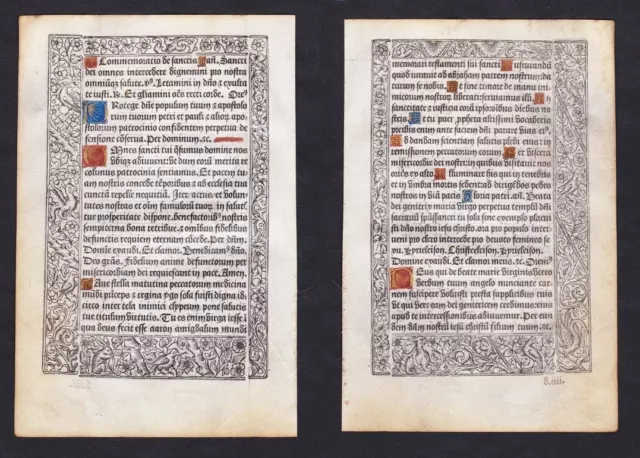 Commemoratio de sanctis an̄. Sancti
dei omnes intercedere dignemini pro nostra
omniūq; salute. v̄s. Letamini in dn̄o & exulta
te iusti. R. Et gliamini om̄s recti corde. Or̄o
Protege dn̄e populum tuum & aposto
lorum tuorum petri et pauli & alior̨ apo
stolorum patrocinio confidentem perpetua de
fensione cōserua. Per dominum. &c.
Omnes sancti tui quesumus dn̄e nos
vbiq; adiuuent: vt dum eorū merita re
colimus patrocinia sentiamus. Et pacem tu
am nostris concede tēporibus & ab ecclesia tua
cunctā repelle nequitiā. Iter actus et volun
tates nostras et oīm famulorū tuor̨ in salutis
tue prosperitate dispone. benefactorib9 nostris
sempiterna bona retribue. & omībus fidelibus
defunctis requiem eternam cōcede. Per dn̄m.
Domine exaudi. Et clamor. Benedicam9 dn̄o.
Deo grās. fidelium anime defunctorum per
misericordiam dei requiescant in pace. Amen.
Aue stella matutina peccatorum medicina
mūdi princeps & regina v̄go sola
circo inter tela inimici clypeum pone salutis
tue titulum virtutis. Tu es enim virga iesse ī
qua deus fecit esse aaron amigdalum mundi
memorari testamenti sui sancti Iusiurandū
quod iurauit ad abraham patrem nostrum: da
turum se nobis. Et sine timore de manu ini
micorum nostror̨ liberati: seruiamus illi. In
sanctitate et iusticia coram ipso: oībus diebus
nostris. Et tu puer, ppheta altissimi vocaberis:
preibis enim ante faciem dn̄i parare vias ei9.
Ad dandam scientiam salutis plebi eius: in
remissionem peccatorum eorum. Per viscera
misericordie dei nostri: in quibus visitauit nos
oriens ex alto. Illuminare his qui in tenebris
et in vmbra mortis sedent: ad dirigēdos pedes
nostros in viā pacis Gloria patri. an̄. Beata
dei genitrix maria virgo perpetua templū dn̄i
sacrariū spūssancti tu sola sine exemplo placui
sti dn̄o nostro iesu christo. ora pro populo interue
ni pro clero intercede pro deuoto femineo se
xu. kyrieleison. Christeeleison. kyrieleison.
Domine exaudi. Et clamor meus. te. Oremus
Deus qui de beate marie virginis vtero
verbum tuum angelo nunciante car
nem suscipere voluisti presta supplicibus tuis
vt qui vere eam dei genitricem credimus: eius
apud te intercessionibus adiuuemur. Per eun
dem dn̄m nostrū iesū christū filium tuum. &c.